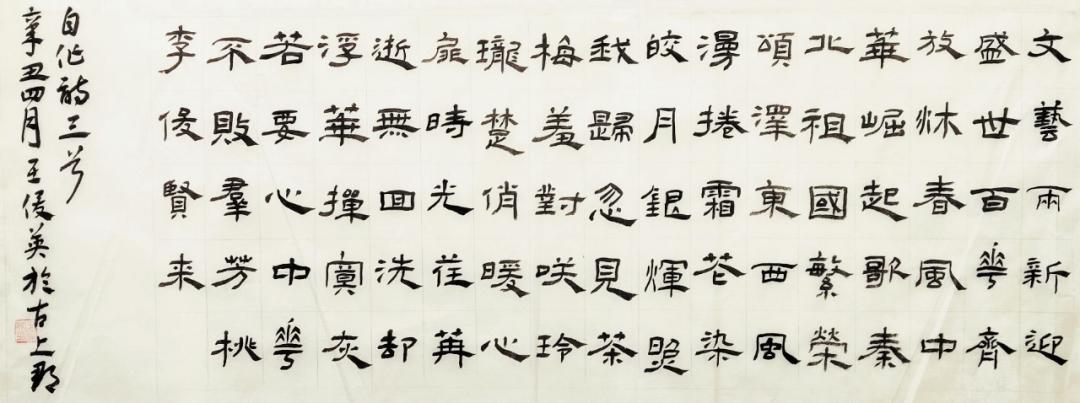 文藝雨新迎
盛世百花齊
放沐春風中
華崛起歌秦
北祖國繁榮
頌澤東西風
漫捲霜芲染
皎月銀輝照
我歸忽見茶
梅羞對咲玲
瓏楚俏暖心
扉時光荏苒
逝無回洗却
浮華撣寞灰
若要心中花
不敗羣芳桃
李俊賢来
自作詩三首
辛丑四月王俊英於古上郡